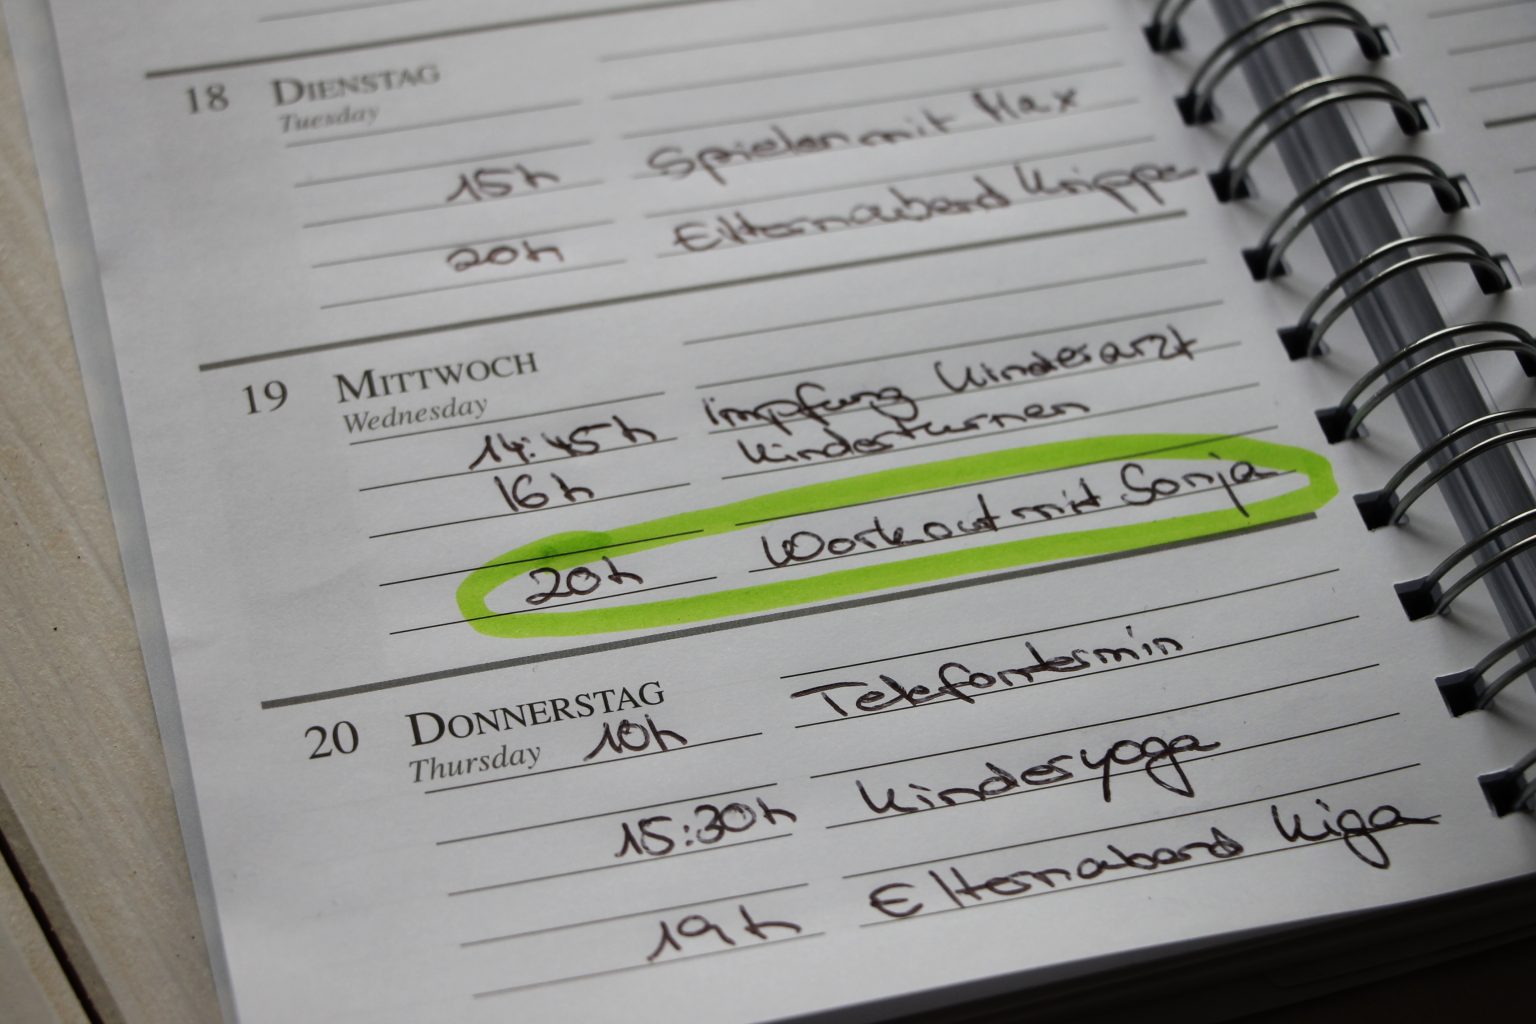 18 DIENSTAG
Tuesday
15h Spielen mit Max
20h Elternabend Krippe
19 MITTWOCH
Wednesday
14:45h Impfung Kinderarzt
16h Kinderturnen
20h Workout mit Sonja
20 DONNERSTAG
Thursday 10h Telefontermin
15:30h Kinderyoga
19h Elternabend Kiga